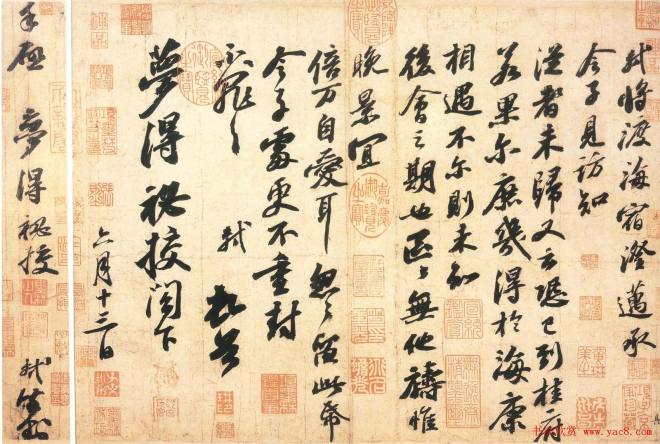 軾將渡海宿澄邁承
令子見訪知
從者未歸又云恐已到桂府
若果爾庶幾得於海康
相遇不爾則未知
後會之期也區〻無他禱惟
晚景宜
倍萬自愛耳忽〻留此帋
令子處更不重封
不罪〻 軾 頓首
夢得祕挍閣下
六月十三日
手啟 夢得祕挍 軾
书法欣赏 www.yac8.com